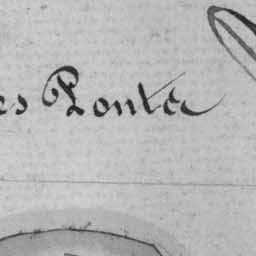 es Ponta